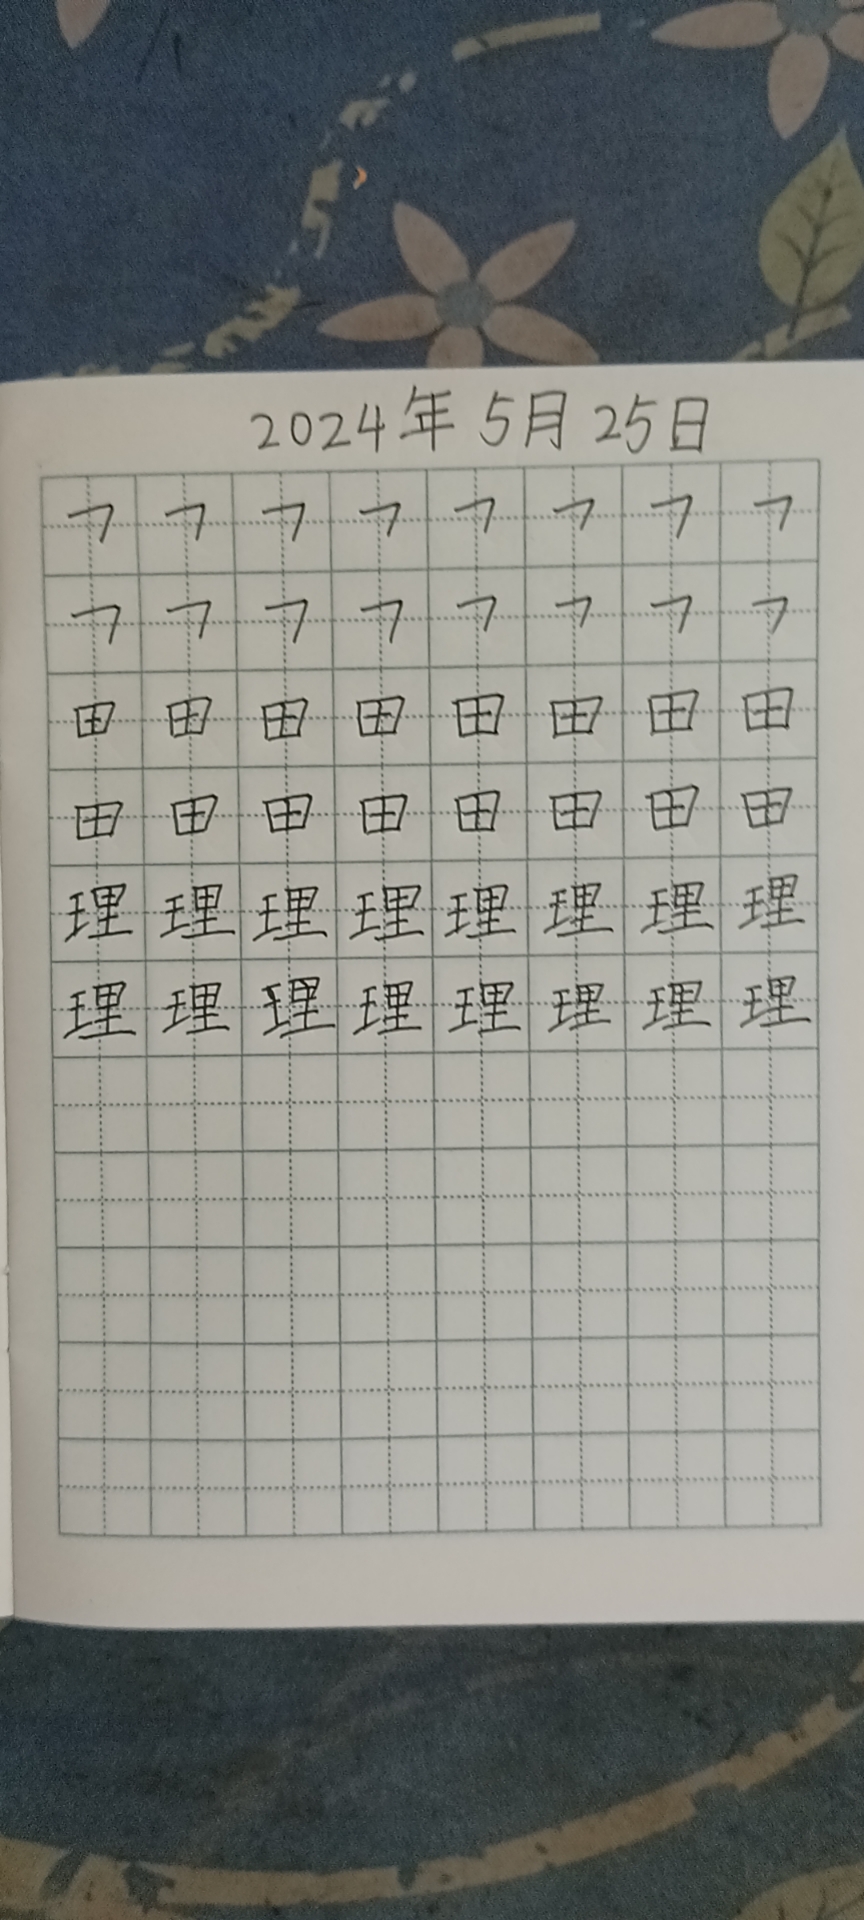 2024年5月25日
㇕ ㇕ ㇕ ㇕ ㇕ ㇕ ㇕ ㇕
㇕ ㇕ ㇕ ㇕ ㇕ ㇕ ㇕ ㇕
田 田 田 田 田 田 田 田
田 田 田 田 田 田 田 田
理 理 理 理 理 理 理 理
理 理 理 理 理 理 理 理